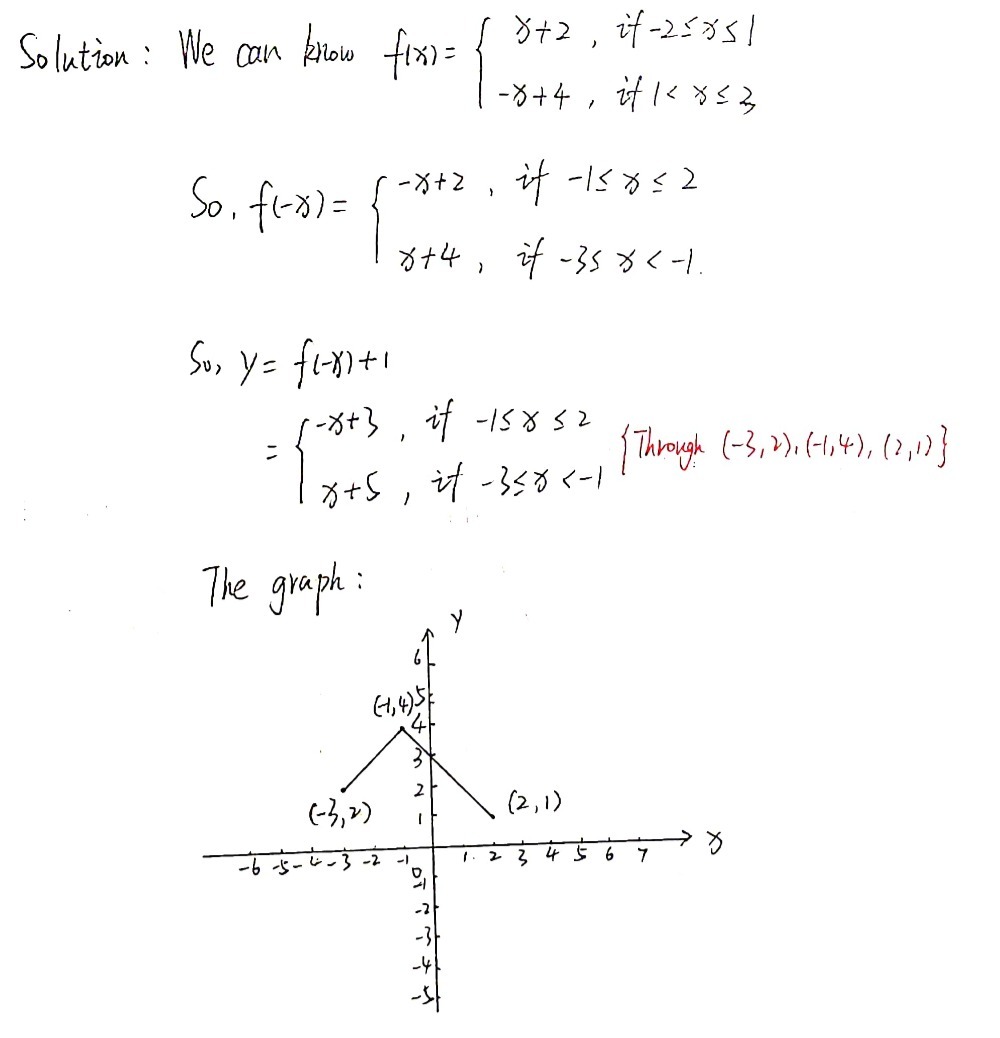 Solution : We can know f(x) = { x+2 , if -2≤x≤1
-x+4 , if 1< x ≤ 3
So, f(-x) = { -x+2 , if -1≤ x ≤ 2
x+4 , if -3≤ x < -1.
So, y = f(-x)+1
= { -x+3 , if -1≤ x ≤ 2
x+5 , if -3≤x <-1 {Through (-3,2), (-1,4), (2,1)}
The graph :
y
6
(-1,4) 5
4
3
2
(-3,2) (2,1)
1
x
-6 -5 -4 -3 -2 -1 1 2 3 4 5 6 7
0
-1
-2
-3
-4
-5